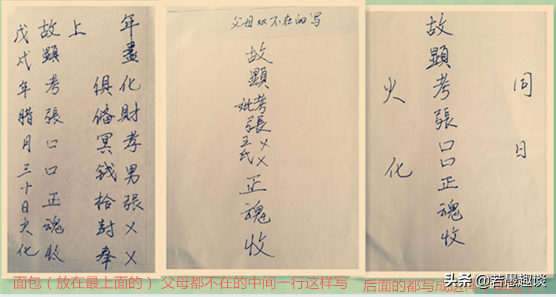 年盡化財孝男張××
俱備冥钱拾封奉
上
故顯考張口口正魂收
戊戌年腊月三十日火化
父母双不在的写
故顯考妣張××王氏××正魂收
同日
故顯考張口口正魂收
火化
面包（放在最上面的）
父母都不在的中间一行这样写
后面的都写成这样
头条 @若愚趣谈